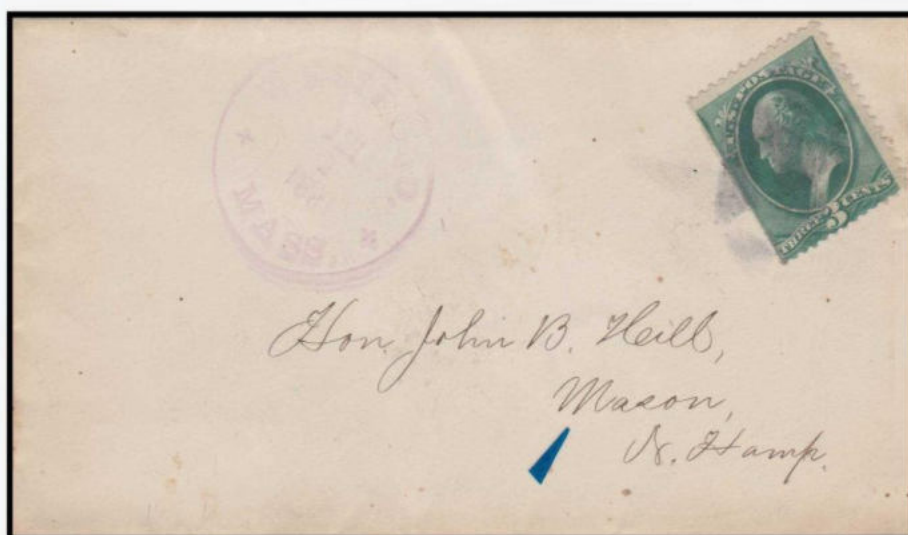 MASS.
U.S. POSTAGE
THREE 3 CENTS
Hon. John B. Hill,
Mason,
N. Hamp.